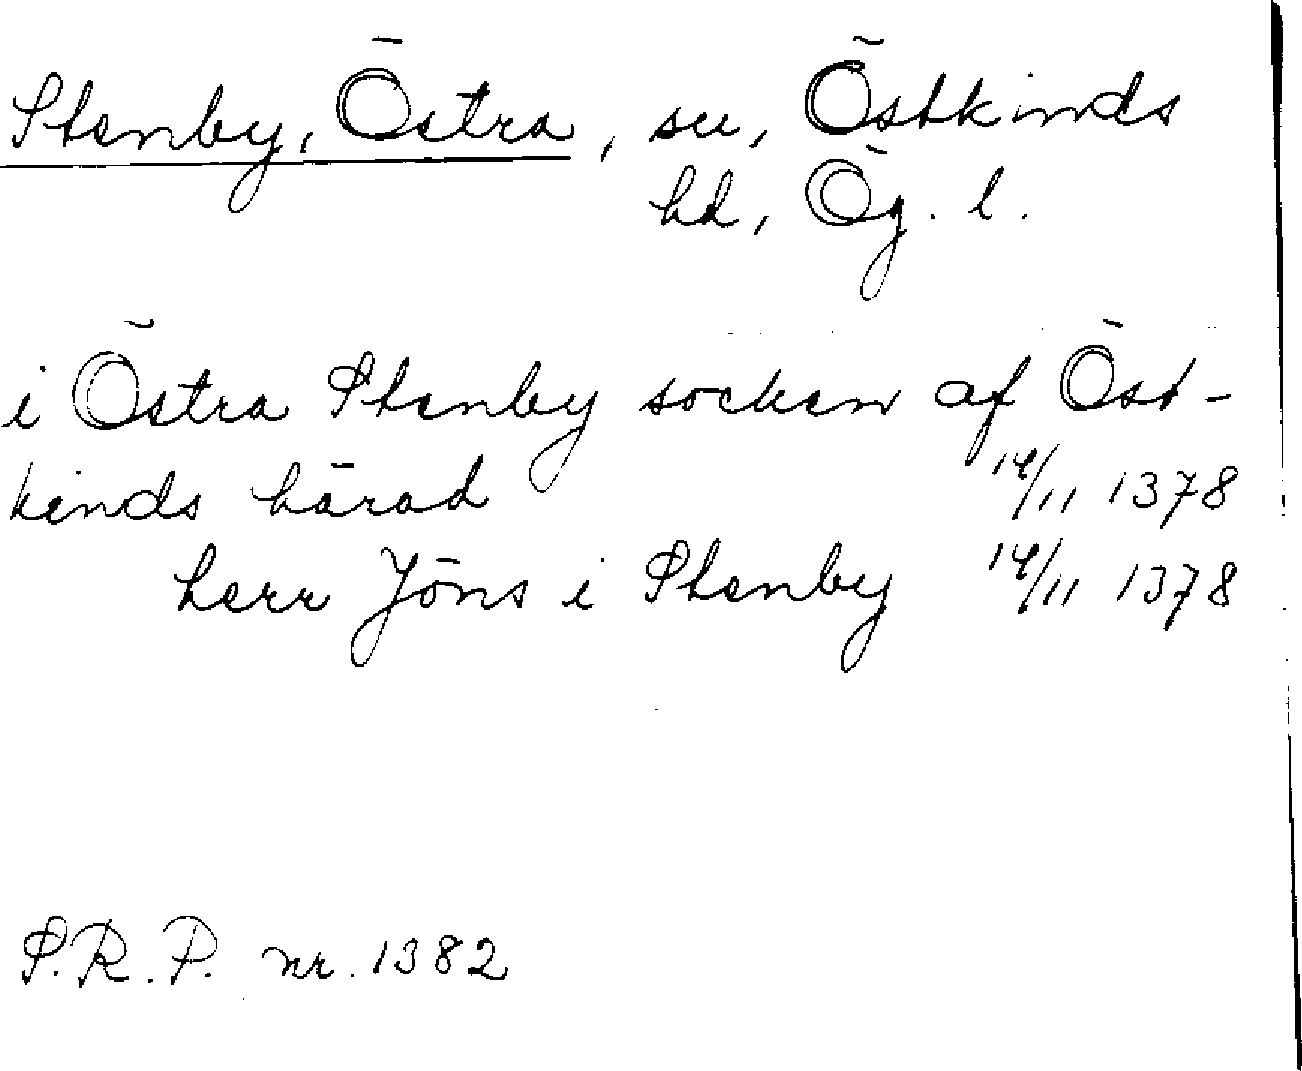 Stenby, Östra, sn, Östkinds
hd, Ög. l.
i Östra Stenby socken af Öst-
kinds härad 14/11 1378
herr Jöns i Stenby 14/11 1378
S.R.P. nr. 1382